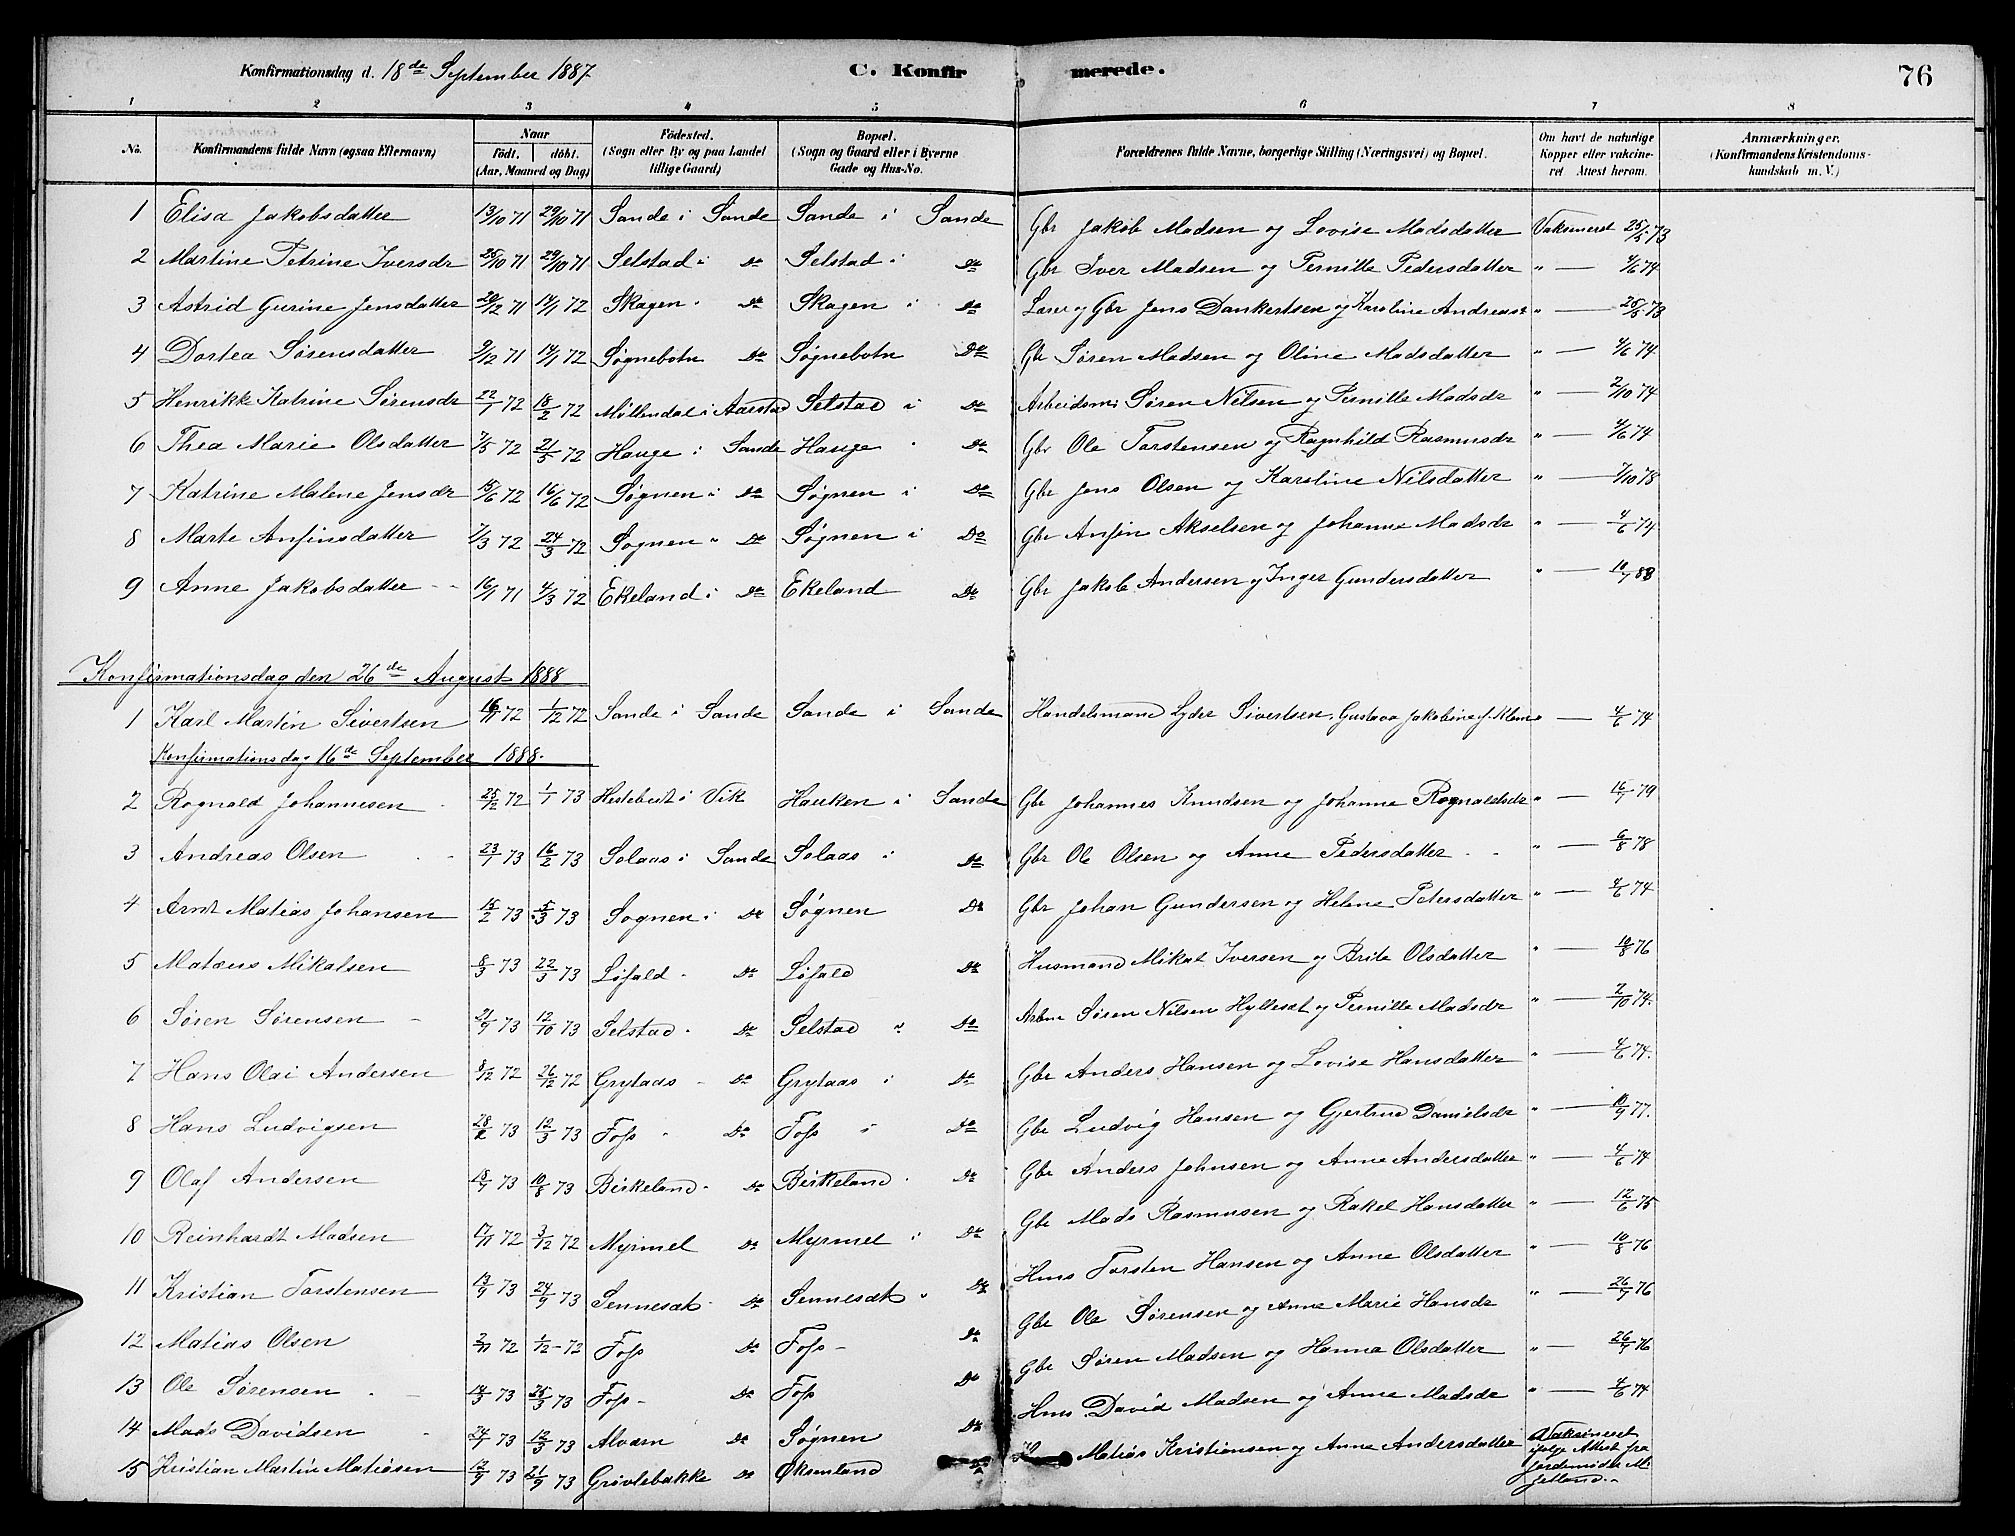 Konfirmationsdag d. 18de September 1887 C. Konfirmerede. 76
1 2 3 4 5 6 7 8
No. Konfirmandens fulde Navn (ogsaa Efternavn) Naar Födt. döbt. (Aar, Maaned og Dag) Födested. (Sogn eller By og paa Landet tillige Gaard) Bopæl. (Sogn og Gaard eller i Byerne Gade og Hus-No. Forældrenes fulde Navne, borgerlige Stilling (Næringsvei) og Bopæl. Om havt de naturlige Kopper eller vakcineret Attest herom. Anmærkninger. (Konfirmandens Kristendomskundskab m. V.)
1 Elisa Jakobsdatter 13/10 71 29/10 71 Sande i Sande Sande i Sande Gbr Jakob Madsen og Lovise Madsdatter Vaksineret 25/5 73
2 Martine Petrine Iversdr 25/10 71 29/10 71 Selstad i Do Selstad i Do Gbr Iver Madsen og Pernille Pedersdatter " — 4/6 74
3 Astrid Gurine Jensdatter 20/12 71 14/1 72 Skagen Do Skagen i Do Lærer og Gbr Jens Dankertsen og Karoline Andreasd " — 25/5 73
4 Dortea Sørensdatter 9/12 71 14/1 72 Søgnebotn Do Søgnebotn Do Gbr Søren Madsen og Oline Madsdatter " — 4/6 74
5 Henrikke Katrine Sørensdr 22/1 72 18/2 72 Møllendal i Aarstad Selstad i Do Arbeidsm: Søren Nilsen og Pernille Madsdr " — 2/10 74
6 Thea Marie Olsdatter 7/5 72 21/5 72 Hauge i Sande Hauge Do Gbr Ole Torstensen og Ragnhild Rasmusdr " — 4/6 74
7 Katrine Malene Jensdr 15/6 72 16/6 72 Søgnen i Do Søgnen i Do Gbr Jens Olsen og Karoline Nilsdatter " — 7/10 78
8 Marte Anfinsdatter 7/3 72 24/3 72 Søgnen " Do Søgnen i Do Gbr Anfin Akselsen og Johanne Madsdr " — 4/6 74
9 Anne Jakobsdatter 16/1 71 4/3 72 Ekeland i Do Ekeland Do Gbr Jakob Andersen og Inger Gundersdatter " — 10/7 88
Konfirmationsdag den 26de August 1888
1 Karl Martin Sivertsen 16/11 72 1/12 72 Sande i Sande Sande i Sande Handelsmand Lyder Sivertsen, Gustava Jakobine f. " — 4/6 74
Konfirmationsdag 16de September 1888.
2 Rognald Johannesen 25/12 72 1/1 73 i Vik Hauken i Sande Gbr Johannes Knudsen og Johanne Rognaldsdr " — 16/7 79
3 Andreas Olsen 23/1 73 16/2 73 Solaas i Sande Solaas i Do Gbr Ole Olsen og Anne Pedersdatter " — 6/8 78
4 Arnt Matias Johansen 15/2 73 5/3 73 Søgnen i Do Søgnen Do Gbr Johan Gundersen og Helene Petersdatter " — 4/6 74
5 Matæus Mikalsen 8/3 73 22/3 73 Løfald Do Løfald Do Husmand Mikal Iversen og Brite Olsdatter " — 10/8 76
6 Søren Sørensen 21/9 73 12/10 73 Selstad Do Selstad " Do Arbm Søren Nilsen Hyllesæt og Pernille Madsdr " — 2/10 74.
7 Hans Olai Andersen 8/12 72 26/12 72 Grytaas Do Grytaas i Do Gbr Anders Hansen og Lovise Hansdatter " — 4/6 74.
8 Hans Ludvigsen 28/2 73 12/3 73 Foss Do Foss i Do Gbr Ludvig Hansen og Gjertrud Danielsdr " — 10/9 77.
9 Olaf Andersen 18/7 73 10/8 73 Birkeland Do Birkeland Do Gbr Anders Johnsen og Anne Andersdatter " — 4/6 74
10 Reinhardt Madsen 17/11 72 3/12 72 Myrmel Do Myrmel i Do Gbr Mads Rasmusen og Rakel Hansdatter " — 12/6 75
11 Kristian Torstensen 13/9 73 24/9 73 Sennesæt Do Sennesæt " Do Hms Torsten Hansen og Anne Olsdatter " — 10/8 76
12 Matias Olsen 2/11 72 1/12 - 72 Foss Do Foss - Do Gbr Ole Sørensen og Anne Marie Hansdr " — 26/7 76
13 Ole Sørensen 14/3 73 25/3 73 Foss - Do Foss Do Gbr Søren Madsen og Hanna Olsdatter " — 26/7 76
14 Mads Davidsen 24/1 73 12/3 73 Alværn Do Søgnen Do Hms David Madsen og Anne Madsdr " — 4/6 74
15 Kristian Martin Matiasen 12/9 73 21/9 73 Grøvlebakke Do Øksenland Do Matias Kristiansen og Anne Andersdatter Vaksineret ifølge Attest fra Jordemoder M. Jetland.